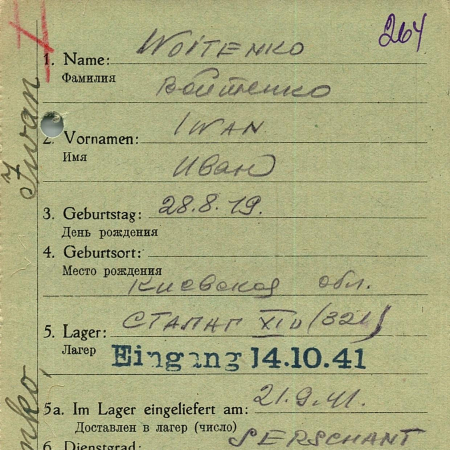 264
1. Name: WOITENKO
Фамилия Войтенко
2. Vornamen: IWAN
Имя Иван
3. Geburtstag: 28.8.19.
День рождения
4. Geburtsort:
Место рождения
Киевская обл.
5. Lager: СТАЛАГ XI D (321)
Лагер
Eingang 14.10.41
5a. Im Lager eingeliefert am: 21.9.41.
Доставлен в лагер (число)
6. Dienstgrad: SERSCHANT
Iwan